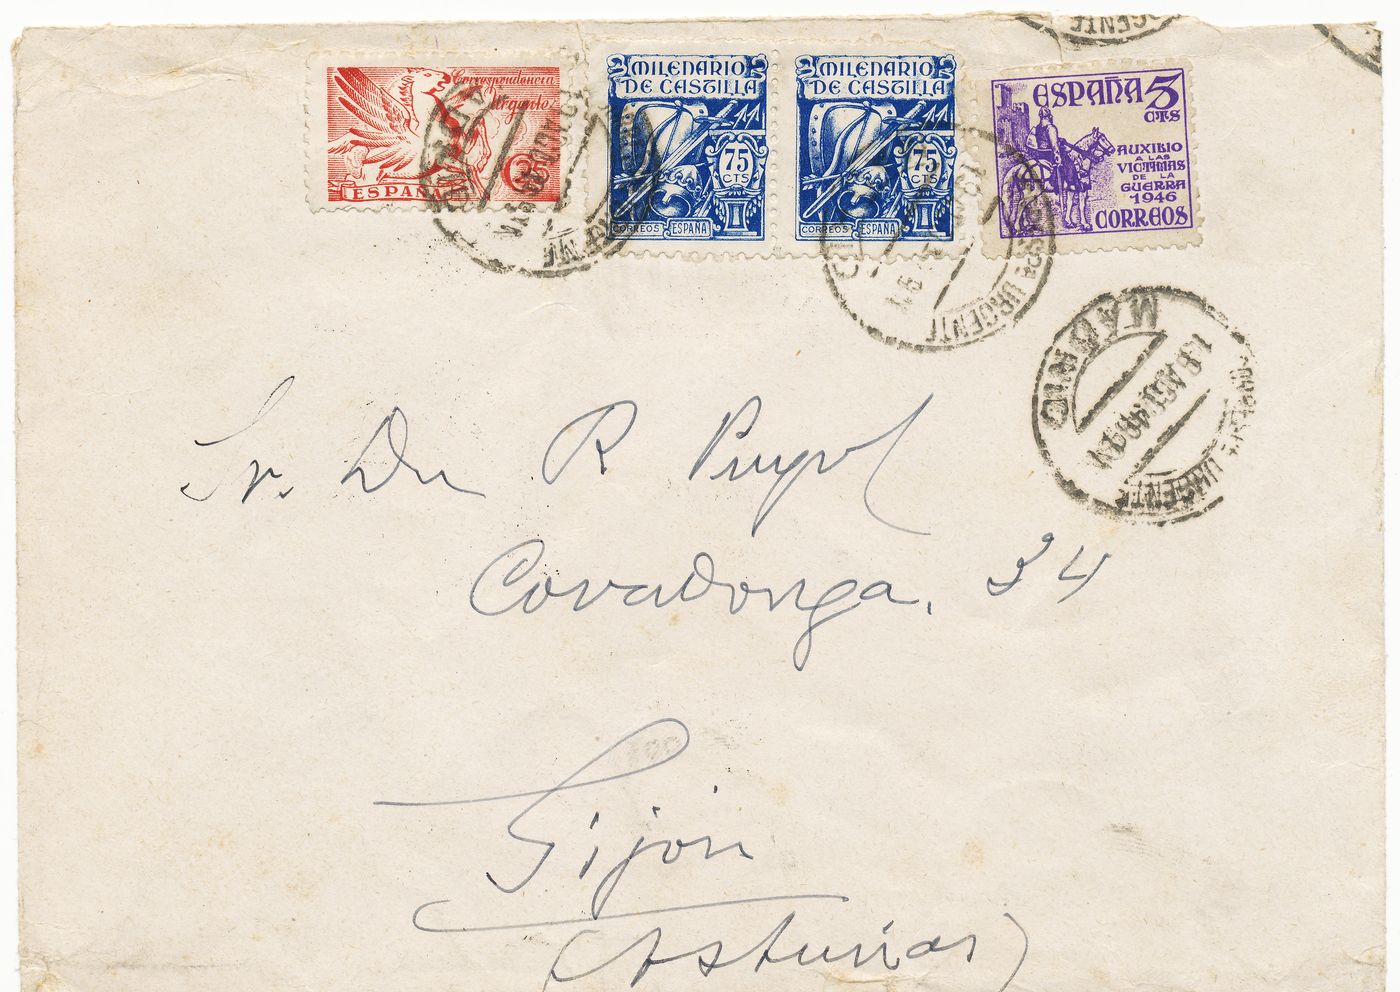 Correspondencia
Urgente
25
ESPAÑA
MILENARIO
DE CASTILLA
75
CTS
CORREOS ESPAÑA
MILENARIO
DE CASTILLA
75
CTS
CORREOS ESPAÑA
ESPAÑA 5
CTS
AUXIBIO
A LAS
VICTIMAS
DE LA
GUERRA
1946
CORREOS
URGENTE
MADRID
URGENTE
Sr. Dn R Puyol
Covadonga, 34
Gijón
(Asturias)